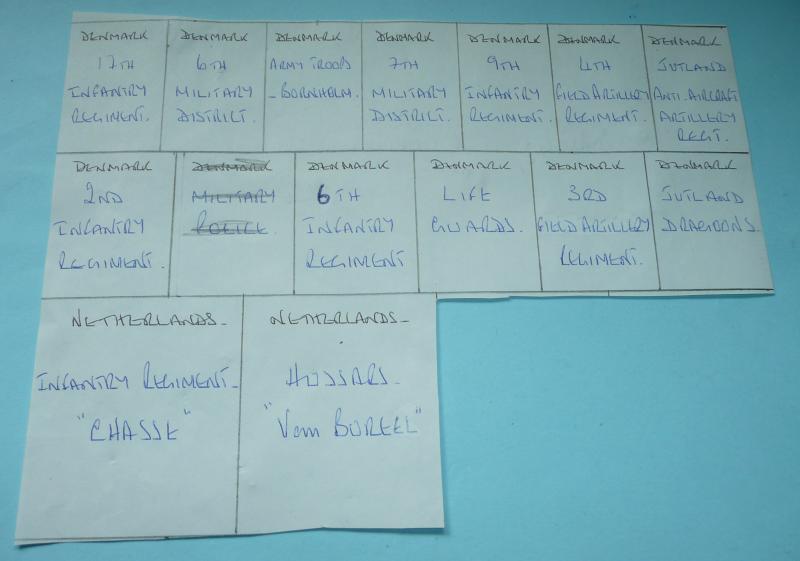 DENMARK
17TH
INFANTRY
REGIMENT.
DENMARK
6TH
MILITARY
DISTRICT.
DENMARK
ARMY TROOPS
- BORNHOLM.
DENMARK
7TH
MILITARY
DISTRICT.
DENMARK
9TH
INFANTRY
REGIMENT.
DENMARK
4TH
FIELD ARTILLERY
REGIMENT.
DENMARK
JUTLAND
ANTI-AIRCRAFT
ARTILLERY
REGT.
DENMARK
2ND
INFANTRY
REGIMENT.
DENMARK
MILITARY
POLICE.
DENMARK
6TH
INFANTRY
REGIMENT
DENMARK
LIFE
GUARDS.
DENMARK
3RD
FIELD ARTILLERY
REGIMENT.
DENMARK
JUTLAND
DRAGOONS.
NETHERLANDS-
INFANTRY REGIMENT-
"CHASSE"
NETHERLANDS-
HUSSARS-
"Van BOREEL"